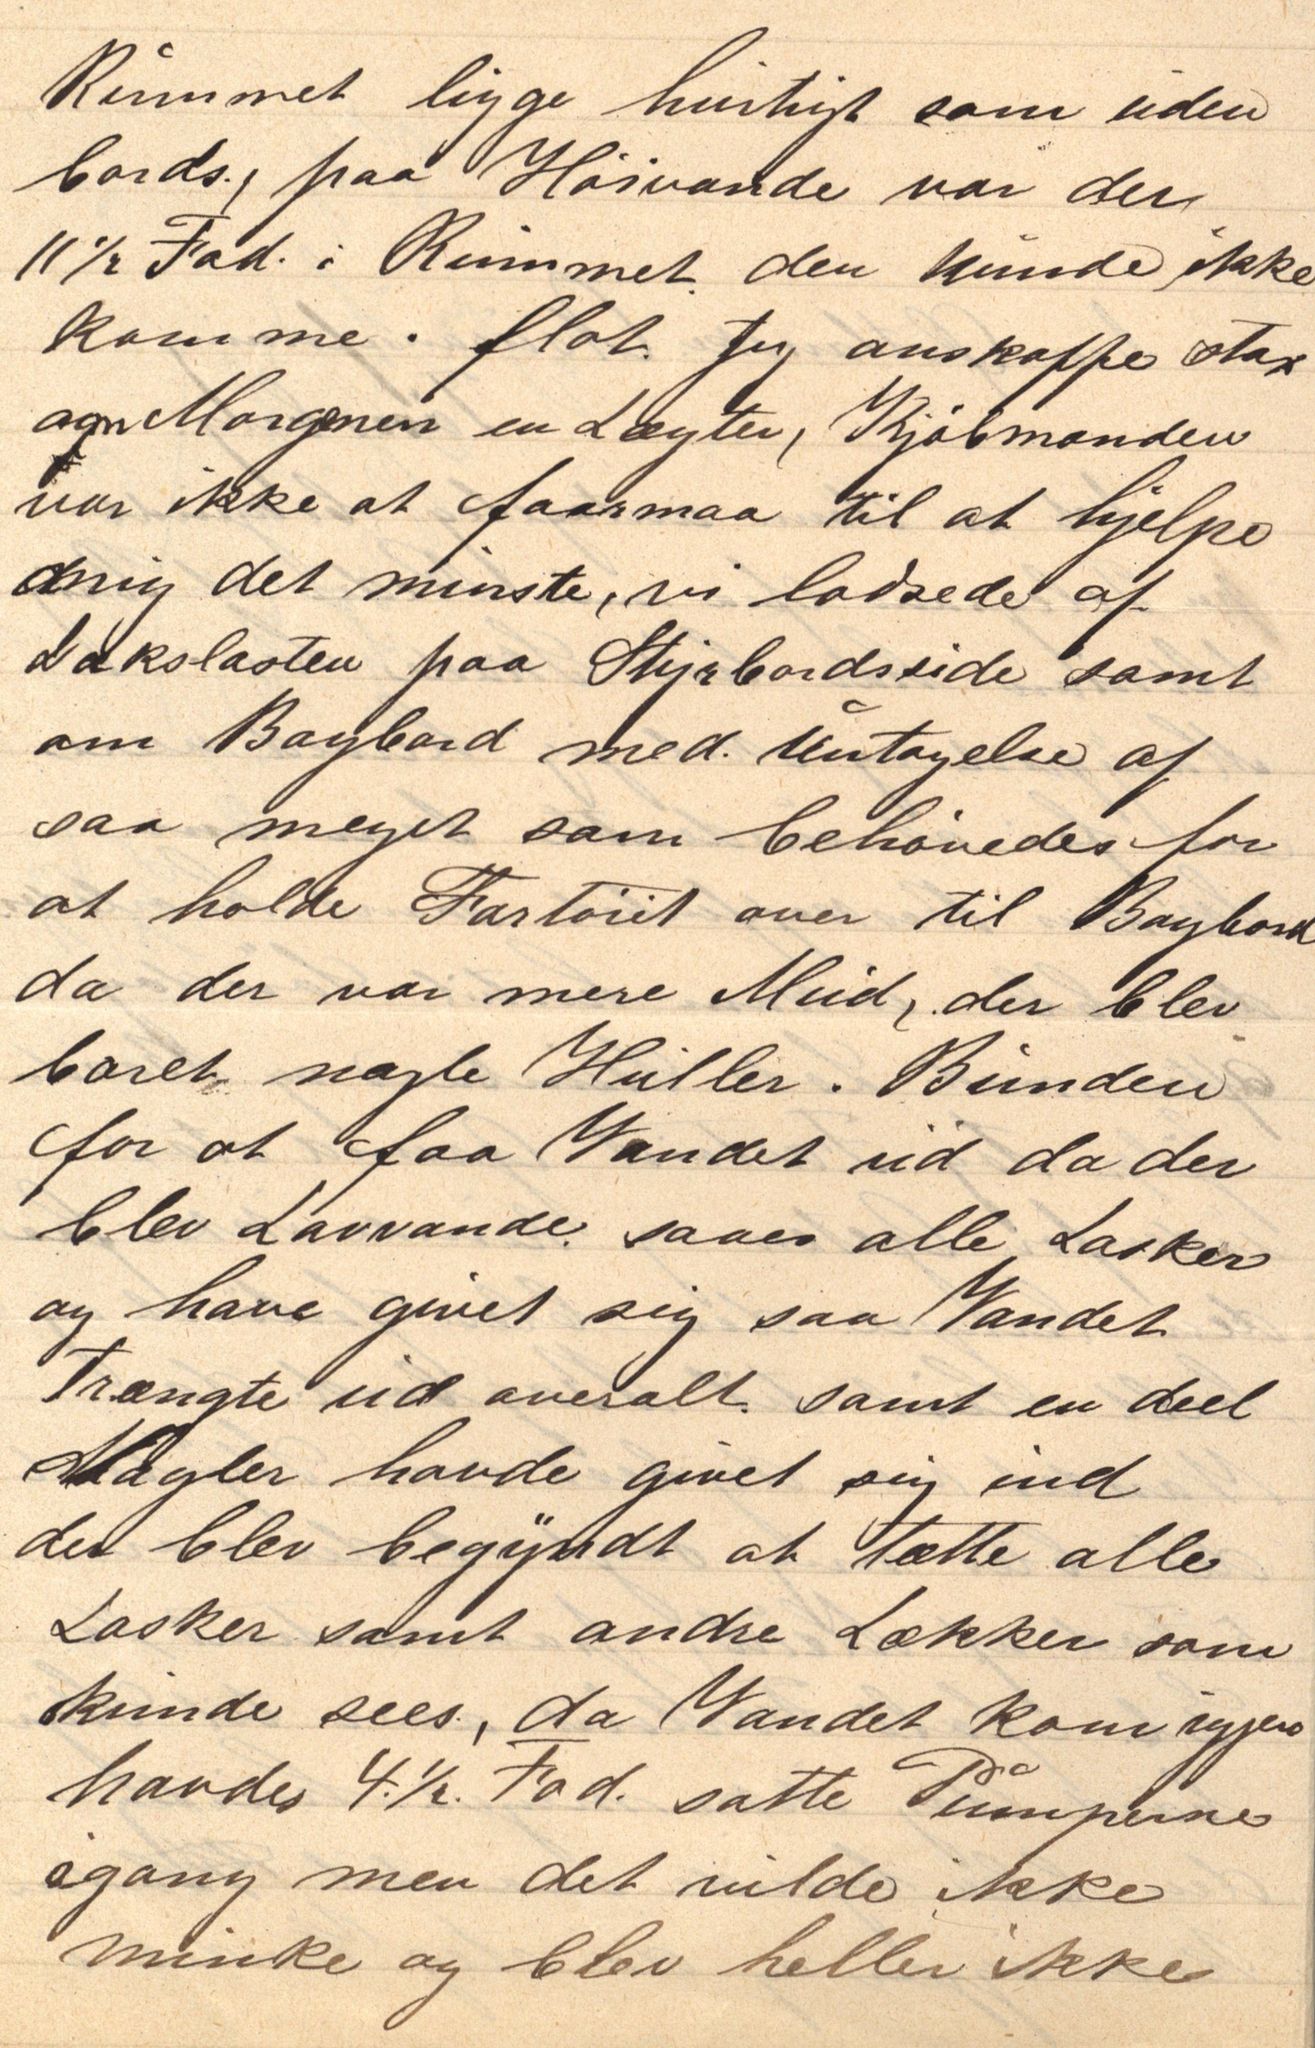 Rummet ligge hurtigt som uden
bords, paa Höivande var der
11 1/2 Fod. i Rummet. den kunde ikke
komme. flot. Jeg anskaffe stax
om Morgenen en Lægter, Kjöbmanden
var ikke at faa til at hjelpe
mig det minste, vi lodsede af
Dækslasten paa Styrbordsside samt
om Bagbord med. Untagelse af
saa meget som behövedes for
at holde Fartöiet over til Bagbord
da der var mere Mud, der blev
boret nogle Huller. Bunden
for at faa Vandet ud da der
blev Lavvande. saaes alle Lasker
og have givet sig saa Vandet
Trængte ud overalt. samt en deel
Nagler havde givet sig ind
der blev begÿndt at tætte alle
Lasker samt andre Lækker som
kunde sees., da Vandet kom iggen
havdes 4. 1/2. Fod. satte Pumperne
igang men det vilde ikke
minke og blev heller ikke